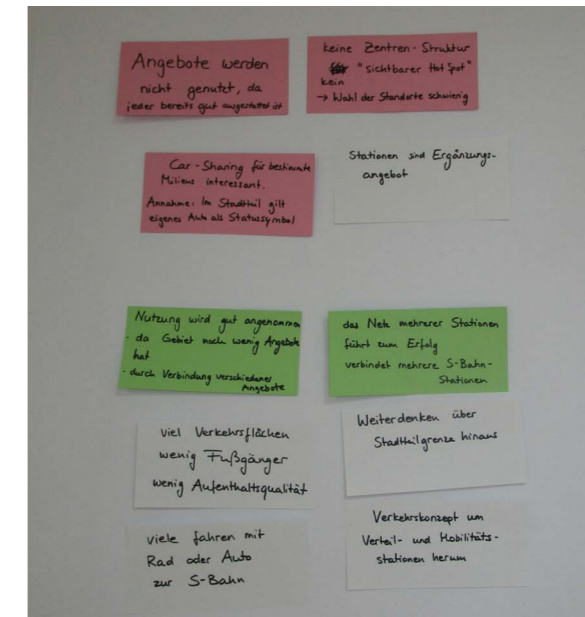 Angebote werden
nicht genutzt, da
jeder bereits gut ausgestattet ist
keine Zentren-Struktur
"sichtbarer Hot Spot"
kein
→ Wahl der Standorte schwierig
Car-Sharing für bestimmte
Milieus interessant.
Annahme: Im Stadtteil gilt
eigenes Auto als Statussymbol
Stationen sind Ergänzungs-
angebot
Nutzung wird gut angenommen
- da Gebiet noch wenig Angebote
hat
- durch Verbindung verschiedener
Angebote
das Netz mehrerer Stationen
führt zum Erfolg
verbindet mehrere S-Bahn-
Stationen
viel Verkehrsflächen
wenig Fußgänger
wenig Aufenthaltsqualität
Weiterdenken über
Stadtteilgrenze hinaus
viele fahren mit
Rad oder Auto
zur S-Bahn
Verkehrskonzept um
Verteil- und Mobilitäts-
stationen herum